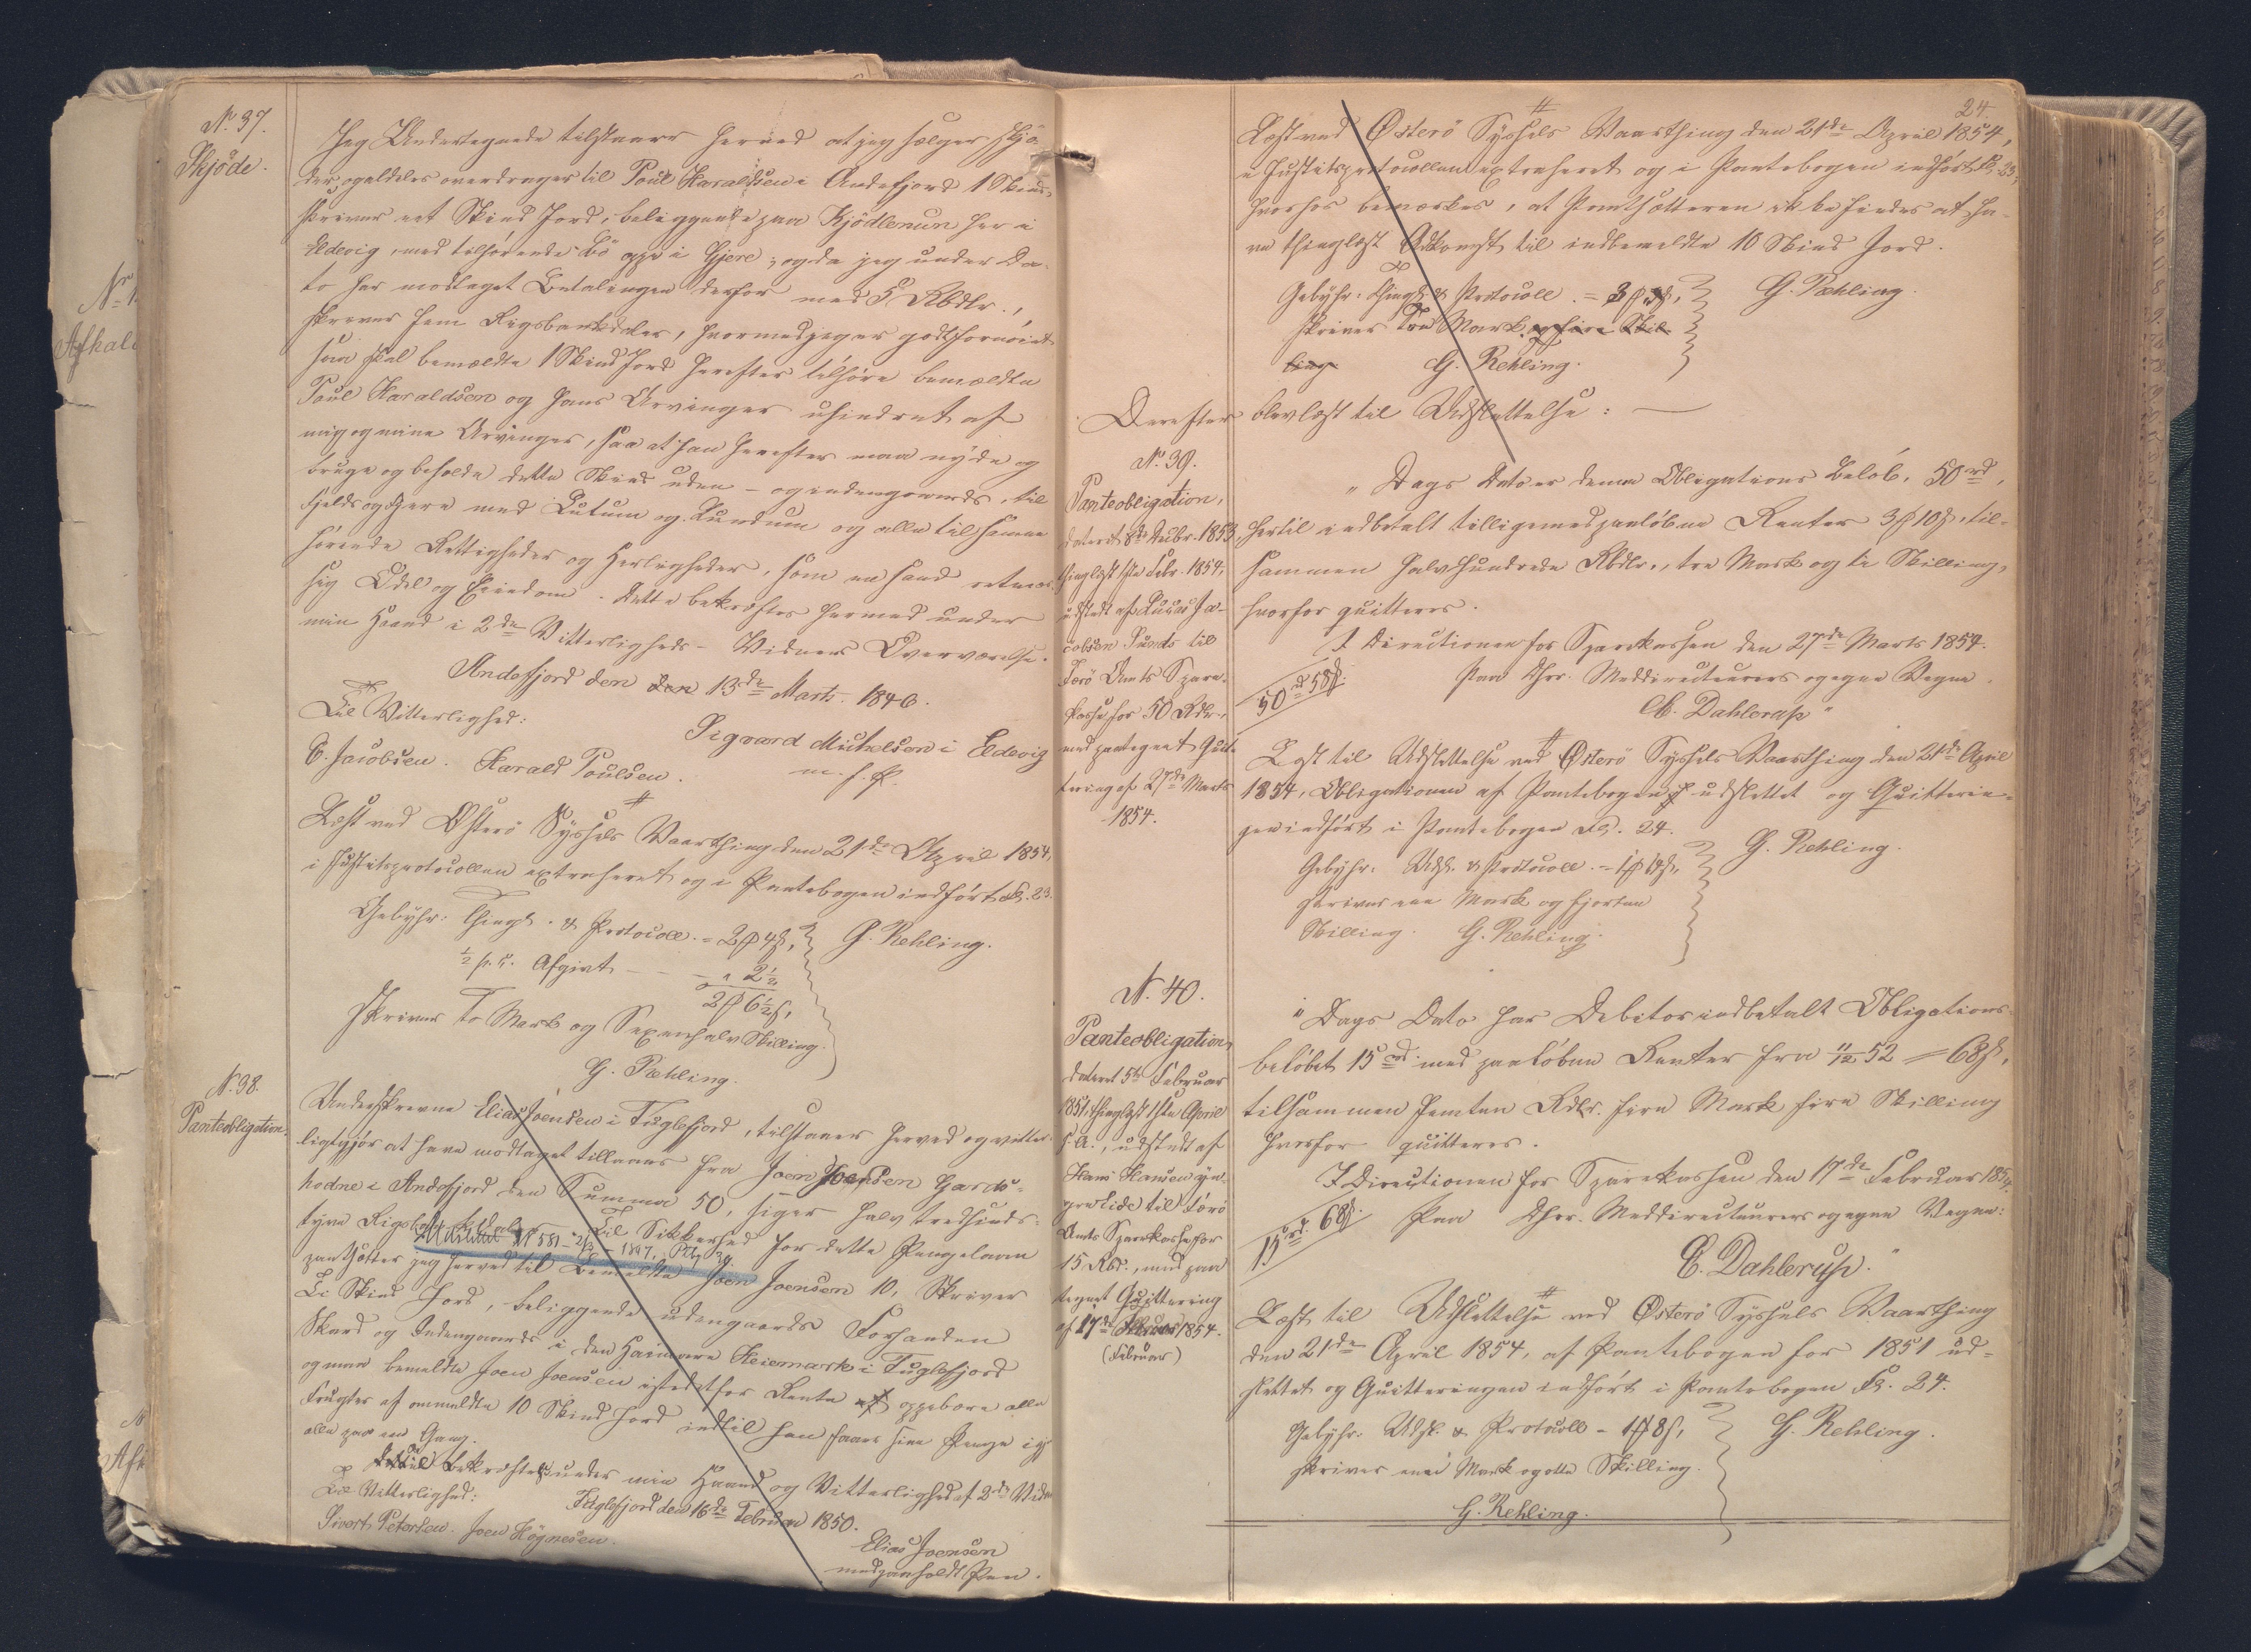 N. 37.
Skjöde.
Jeg Undertegnede tilstaaer herved at jeg sælger skjö-
der og aldeles overdrager til Poul Haraldsen i Andefjord 1 Skind,
skriver eet Skind Jord, beliggende paa Kjödlenun her i
Eldevig, med tilhörende Bö oppe i Gjere; og da jeg under Da-
to har modtaget Betalingen derfor med 5 Rbdlr.,
skriver fem Rigsbankdaler, hvormed jeg er godt fornöiet
saa skal bemældte 1 Skind Jord herefter tilhöre bemældte
Poul Haraldsen og hans Arvinger uhindret af
mig og mine Arvinger, saa at han herefter maa nyde og
bruge og beholde dette Skind uden- og indengaards, til
Fjelds og Fjere med Lutum og Lundum og alle til samme
hörende Rettigheder og Herligheder, som en sand retmæs-
sig Odel og Eiendom. Dette bekræftes hermed under
min Haand i 2de Vitterligheds-Vidners Overværelse.
Andefjord den den 13de Marts 1846.
Til Vitterlighed:
Sigvard Michelsen i Eldevig
m. f. P.
C. Jacobsen. Harald Poulsen.
Læst ved Österö Syssels Vaarthing den 21de April 1854,
i Justitsprotocollen extraheret og i Pantebogen indfört Fo. 23.
Gebyhr: Thingl. & Protocoll. = 2 4
G. Rehling.
½ p. C. Afgivt - - - " 2½
2 6½
Skriver To Mark og Syvenhalv Skilling.
G. Rehling.
N. 38.
Panteobligation.
Underskrevne Elias Joensen i Fuglefjord, tilstaaer herved og vitter-
ligtgjör at have modtaget tillaans fra Joen Joensen Gards-
hodne i Andefjord den Summa 50, siger halvtredsinds-
tyve Rigsbankdaler. Til Sikkerhed for dette Pengelaan
Udslettet N 581 - 1897,
pantsætter jeg herved til Bemeldte Joen Joensen 10, Skriver
Ti Skind Jord, beliggende udengaards Forhanden
Skard og Indengaards i den Haimare Heiemark i Fuglefjord
og maa bemeldte Joen Joensen istedetfor Rente oppebære alle
Frugter af ommeldte 10 Skind Jord indtil han faaer sine Penge igj
alle paa en Gang.
Dette bekræftes under min Haand og Vitterlighed af 2de Vidn
Til Vitterlighed:
Fuglefjord den 16de Februar 1850.
Sivert Petersen. Joen Högnesen.
Elias Joensen
med paaholdt Pen.
24.
Læst ved Österö Syssels Vaarthing den 21de April 1854,
i Justitsprotocollen extraheret og i Pantebogen indfört Fo. 23;
hvorhos bemærkes, at Pantsætteren ikke findes at ha-
ve thinglæst Adkomst til indbemeldte 10 Skind Jord.
Gebyhr: Thingl. & Protocoll. = 3
G. Rehling.
skriver Tre Mark og fire Skil-
ling.
G. Rehling.
Derefter blev læst til Udslettelse:
N. 39.
Panteobligation,
dateret 8de Decbr. 1853,
thinglæst 1ste Febr. 1854,
udstedt af Lucas Ja-
cobsen Sunds til
Færö Amts Spare-
kasse for 50 Rdlr.,
med paategnet Quit-
tering af 27de Marts
1854.
"Dags Dato er denne Obligations Belöb, 50 rd,
hertil indbetalt tilligemed paalöbne Renter 3 10, til-
sammen halvhundrede Rbdlr., tre Mark og ti Skilling,
hvorfor quitteres.
I Directionen for Sparekassen den 27de Marts 1854.
50 rd 58
Paa Hrr. Meddirecteurers og egne Vegne.
C. Dahlerup"
Læst til Udslettelse ved Österö Syssels Vaarthing den 21de April
1854, Obligationen af Pantebogen udslettet og Quitterin-
gen indfört i Pantebogen Fo. 24.
Gebyhr: Udsl. & Protocoll. = 1 14
G. Rehling.
skriver een Mark og fjorten
Skilling. G. Rehling.
N. 40.
Panteobligation,
dateret 5te Februar
1851, thinglæst 1ste April
s. A., udstedt af
Hans Hansen yn-
gre Eide til Færö
Amts Sparekasse for
15 Rbd., med paa
tegnet Quittering
af 17de Februar 1854.
(Februar)
"Dags Dato har Debitor indbetalt Obligations-
belöbet 15 rd med paalöbne Renter fra 11/12 52 = 68,
tilsammen femten Rdlr. fire Mark fire Skilling
hvorfor quitteres.
I Directionen for Sparekassen den 17de Februar 1854.
15 rd. 68
Paa Hrr. Meddirecteurers og egne Vegne:
C. Dahlerup."
Læst til Udslettelse ved Österö Syssels Vaarthing
den 21de April 1854, af Pantebogen for 1851 ud-
slettet og Quitteringen indfört i Pantebogen Fo. 24.
Gebyhr: Udsl. & Protocoll - 1 8
G. Rehling.
skriver een Mark og otte Skilling.
G. Rehling.